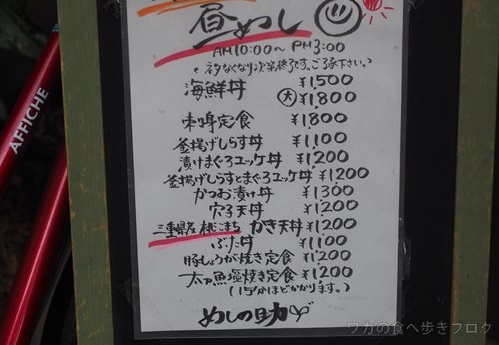 昼めし
AM10:00〜PM3:00
ネタなくなり次第終了です。ご了承下さい。
海鮮丼 ¥1,500
大 ¥1,800
刺身定食 ¥1,800
釜揚げしらす丼 ¥1,100
漬けまぐろユッケ丼 ¥1,200
釜揚げしらすとまぐろユッケ丼 ¥1200
かつお漬け丼 ¥1,300
穴子天丼 ¥1,200
三重県産 桃こまち かき天丼 ¥1200
ぶた丼 ¥1100
豚しょうが焼き定食 ¥1,200
太刀魚塩焼き定食 ¥1200
(15分ほどかかります。)
めしの助
AFFICHE
ワカの食べ歩きブログ